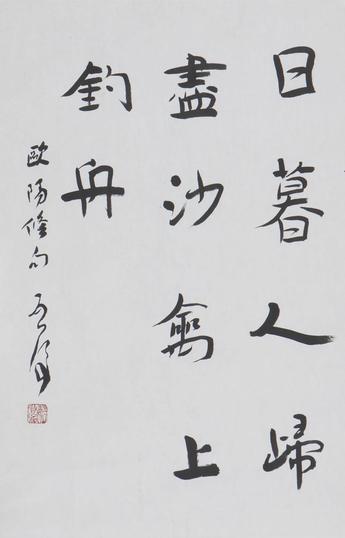 日暮人歸
盡沙禽上
釣舟
歐陽修句